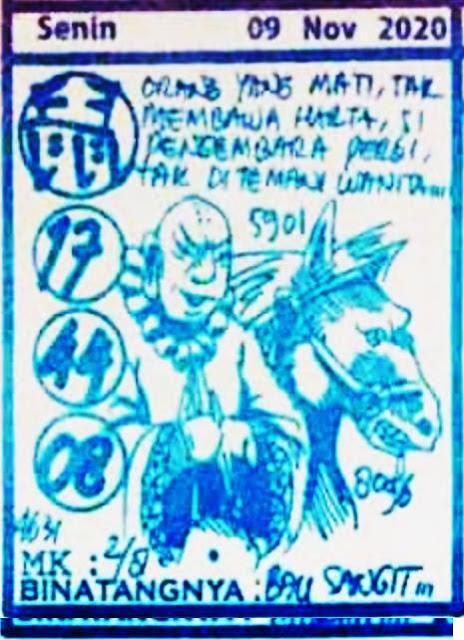 Senin 09 Nov 2020
ORANG YANG MATI, TAK
MEMBAWA HARTA, SI
PENGEMBARA PERGI,
TAK DITEMANI WANITA...
5901
17
44
08
MK : 2/8
BINATANGNYA : BAU SANGIT...